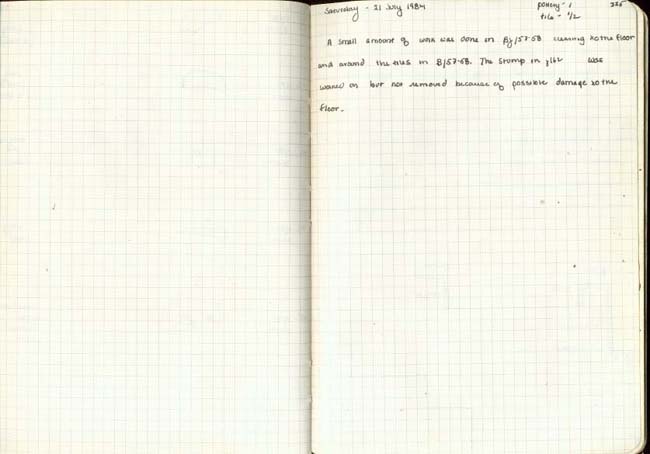 Saturday - 21 July 1984
pottery - 1
tile - 1/2
A small amount of work was done in B/57-58 cleaning to the floor
and around the tiles in B/57-58. The stump in /62 was
worked on but not removed because of possible damage to the
floor.